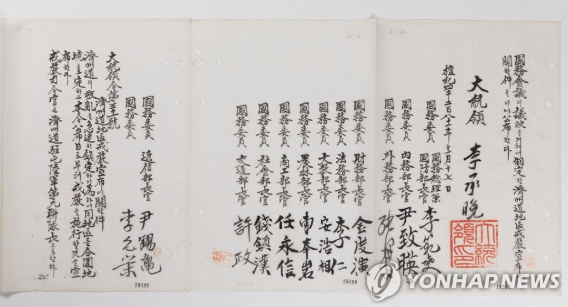 國務會議의 議決을 거쳐서 制定한 濟州道地區 戒嚴宣布에
關한 件을 이에 公布한다
大統領 李承晩
大統領印
檀紀四千二百八十一年十一月十七日
國務總理兼
國防部長官 李範奭
國務委員 內務部長官 尹致暎
國務委員 外務部長官
國務委員 財務部長官 金度演
國務委員 法務部長官 李仁
國務委員 文敎部長官 安浩相
國務委員 農林部長官 曺奉岩
國務委員 商工部長官 任永信
國務委員 社會部長官 錢鎭漢
國務委員 交通部長官 許政
國務委員 遞信部長官 尹錫龜
國務委員 李允榮
大統領令第三十一號
濟州道地區戒嚴宣布에 關한 件
濟州道의 叛亂을 急速히 鎭定하기 爲하여 同地區를 合圍地
境으로 定하고 本令公布日로부터 戒嚴을 施行할 것을 宣
布한다
戒嚴司令官은 濟州道駐屯陸軍第九聯隊長으로 한다
연합뉴스
YONHAPNEWS